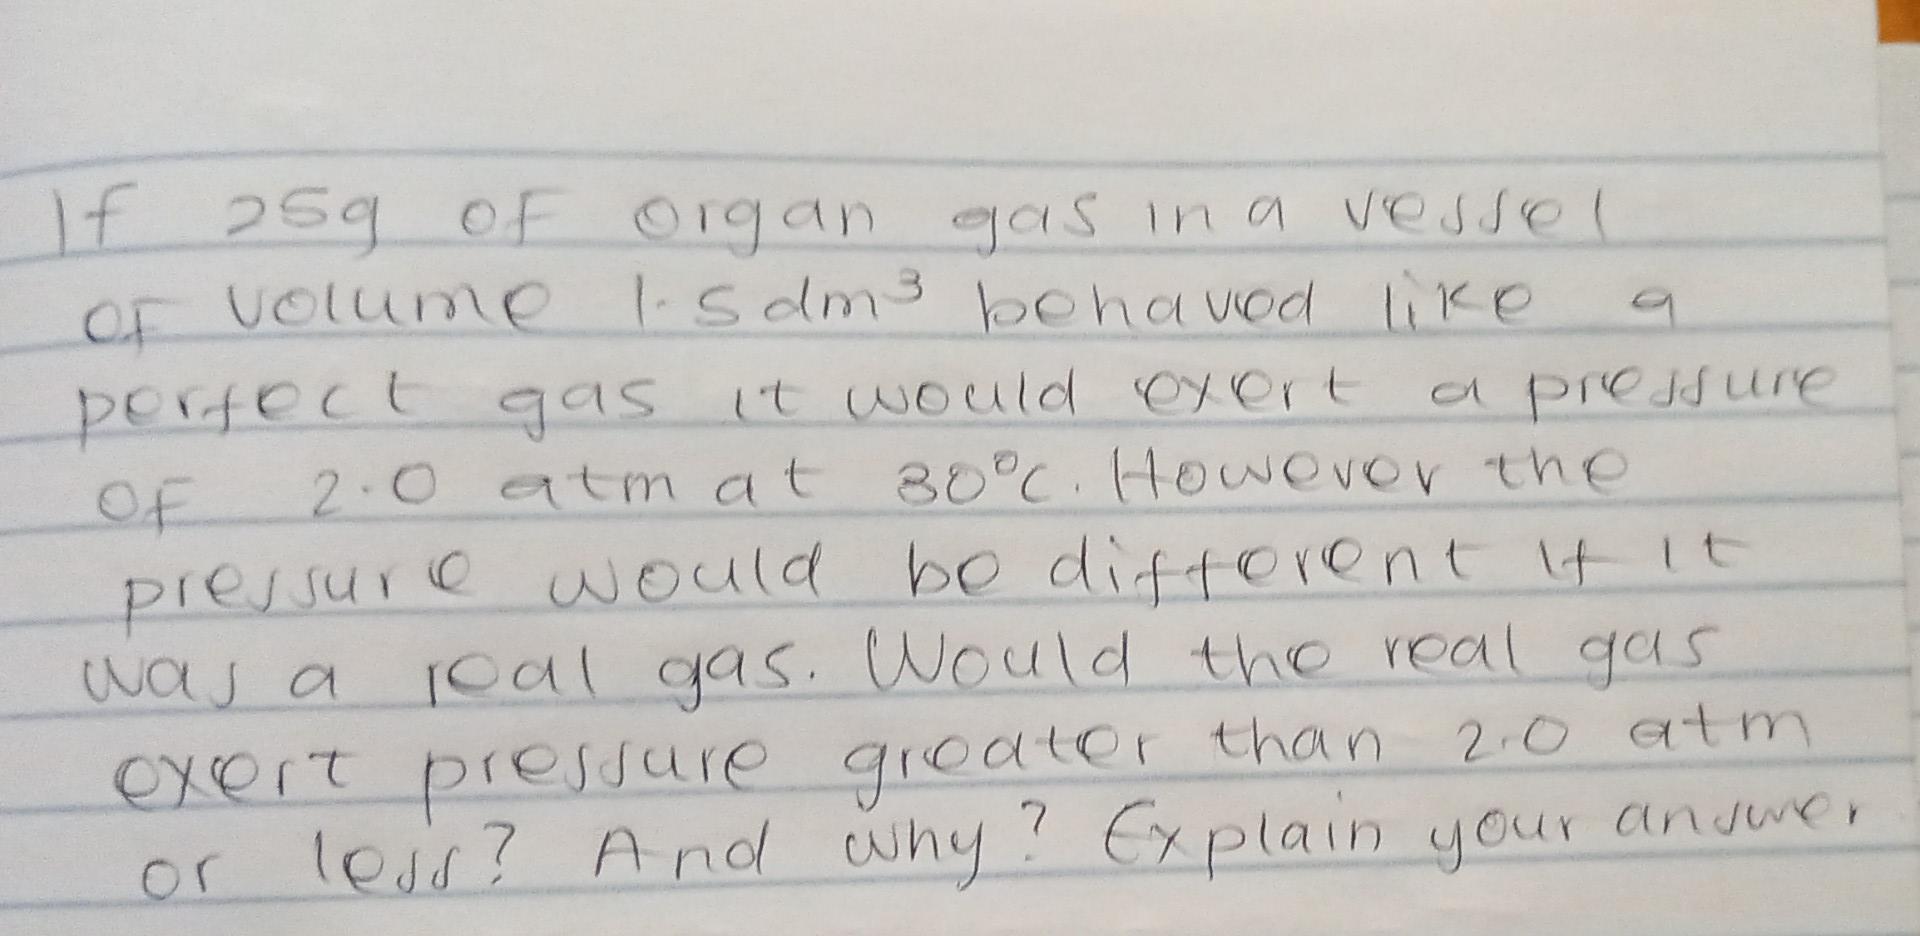 If 25g of organ gas in a vessel
of volume 1.5 dm³ behaved like a
perfect gas it would exert a pressure
of 2.0 atm at 30°C. However the
pressure would be different if it
was a real gas. Would the real gas
exert pressure greater than 2.0 atm
or less? And why? Explain your answer